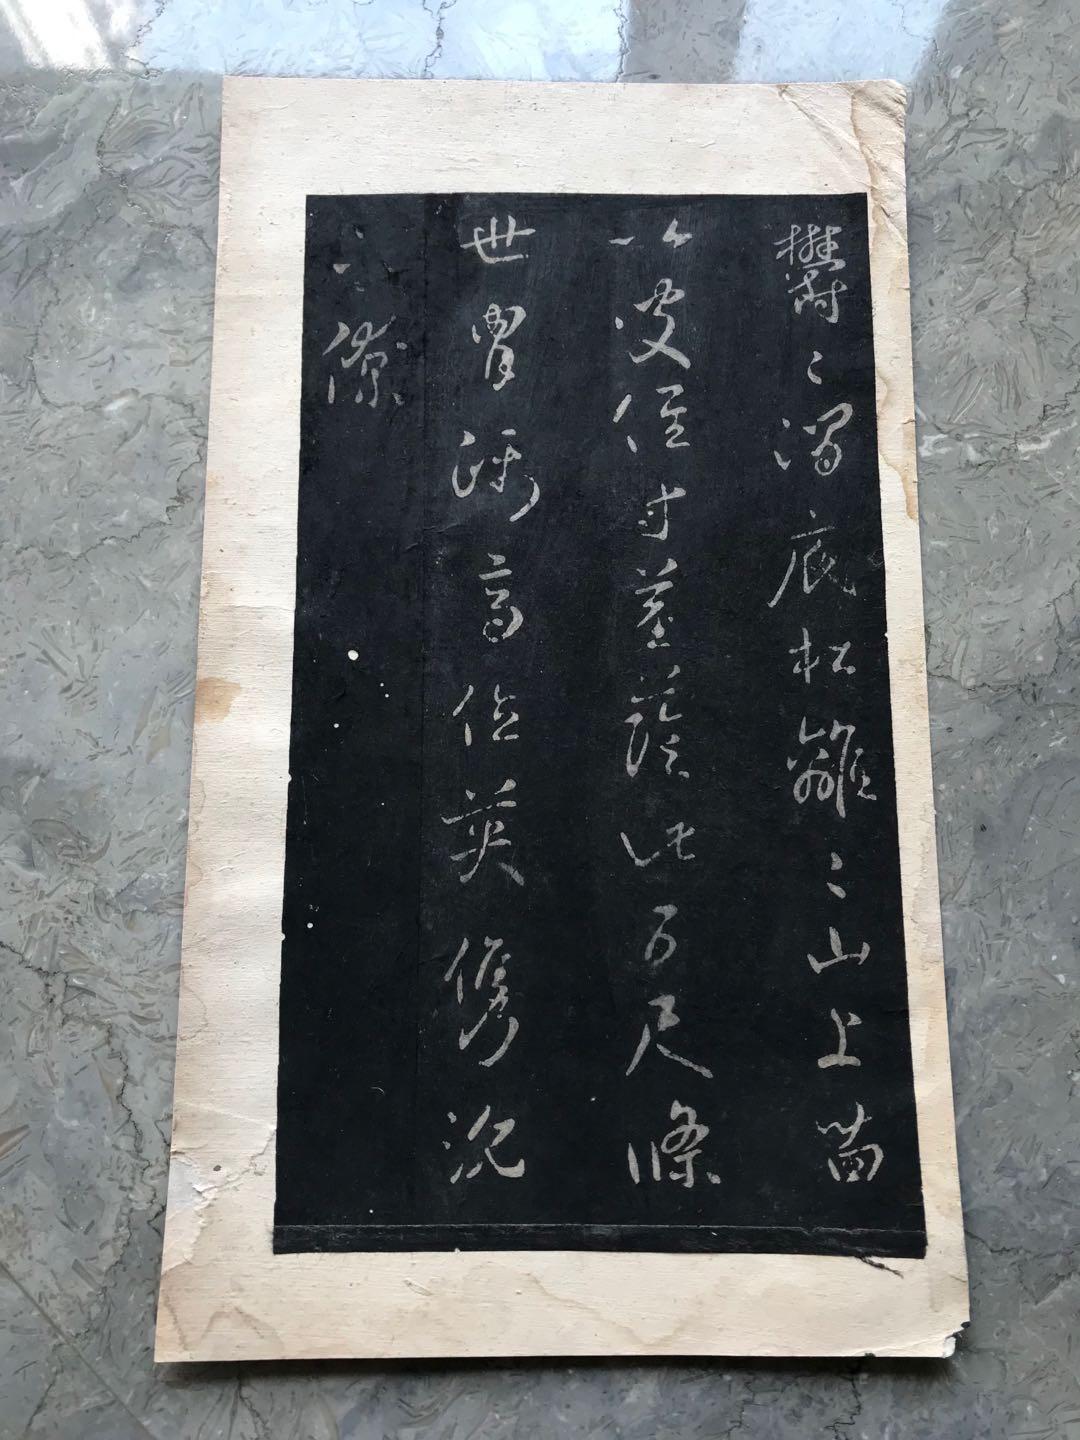 鬱〻澗底松離〻山上苗
以彼徑寸莖蔭此百尺條
世胄躡高位英儁沉
下僚